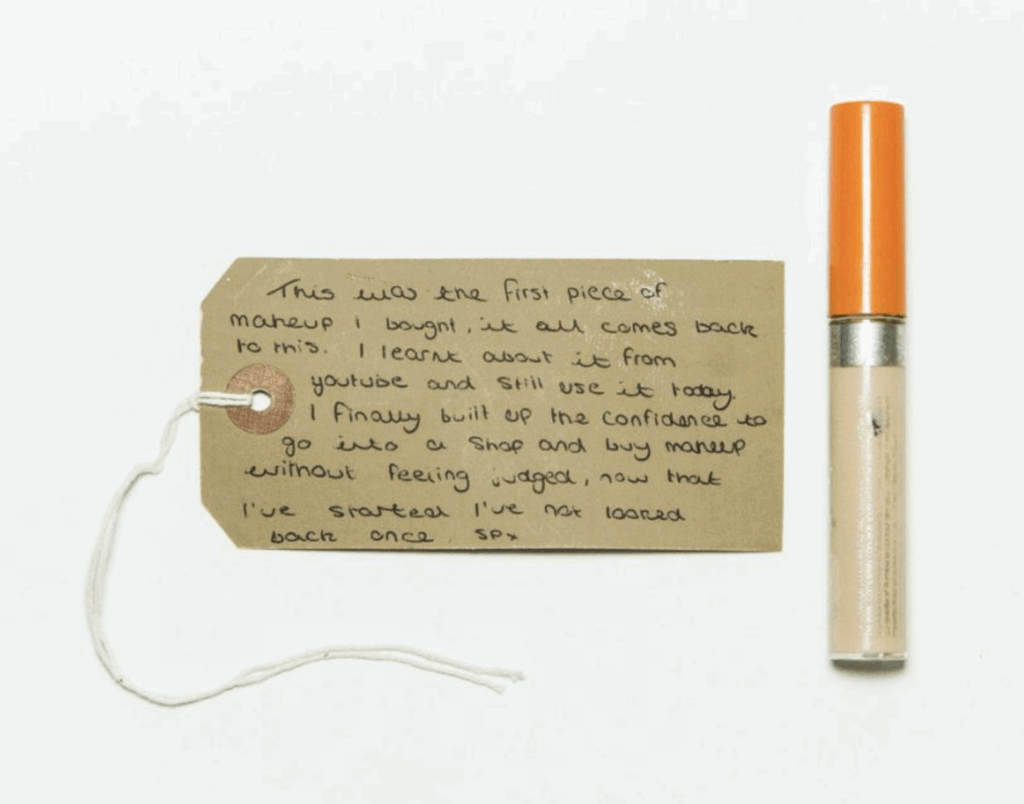 This was the first piece of
makeup I bought, it all comes back
to this. I learnt about it from
youtube and still use it today.
I finally built up the confidence to
go into a shop and buy makeup
without feeling judged, now that
I've started I've not looked
back once. SPx